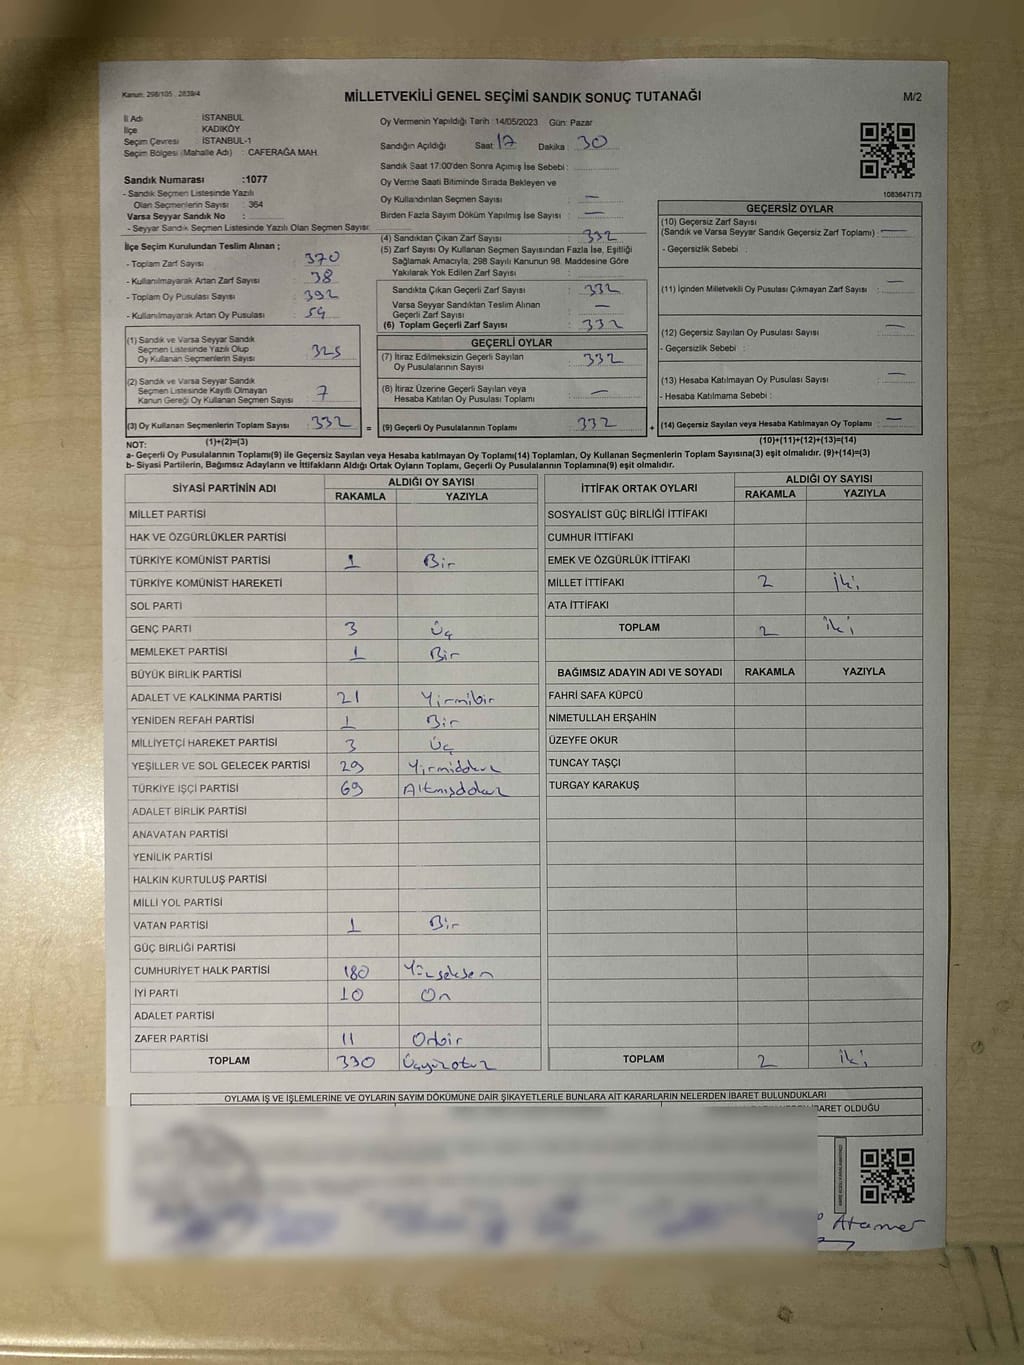 Kanun: 298/105 , 2839/4
MİLLETVEKİLİ GENEL SEÇİMİ SANDIK SONUÇ TUTANAĞI
M/2
İl Adı İSTANBUL
İlçe KADIKÖY
Seçim Çevresi İSTANBUL-1
Seçim Bölgesi (Mahalle Adı) : CAFERAĞA MAH.
Sandık Numarası :1077
- Sandık Seçmen Listesinde Yazılı
Olan Seçmenlerin Sayısı : 364
Varsa Seyyar Sandık No :
- Seyyar Sandık Seçmen Listesinde Yazılı Olan Seçmen Sayısı:
İlçe Seçim Kurulundan Teslim Alınan ;
- Toplam Zarf Sayısı : 370
- Kullanılmayarak Artan Zarf Sayısı : 38
- Toplam Oy Pusulası Sayısı : 392
- Kullanılmayarak Artan Oy Pusulası : 59
(1) Sandık ve Varsa Seyyar Sandık
Seçmen Listesinde Yazılı Olup
Oy Kullanan Seçmenlerin Sayısı : 325
(2) Sandık ve Varsa Seyyar Sandık
Seçmen Listesinde Kayıtlı Olmayan
Kanun Gereği Oy Kullanan Seçmen Sayısı : 7
(3) Oy Kullanan Seçmenlerin Toplam Sayısı : 332
(1)+(2)=(3)
Oy Vermenin Yapıldığı Tarih :14/05/2023 Gün: Pazar
Sandığın Açıldığı Saat: 17 Dakika : 30
Sandık Saat 17:00'den Sonra Açımış İse Sebebi :
Oy Verme Saati Bitiminde Sırada Bekleyen ve
Oy Kullandırılan Seçmen Sayısı : —
Birden Fazla Sayım Döküm Yapılmış İse Sayısı : —
(4) Sandıktan Çıkan Zarf Sayısı : 332
(5) Zarf Sayısı Oy Kullanan Seçmen Sayısından Fazla İse, Eşitliği
Sağlamak Amacıyla, 298 Sayılı Kanunun 98. Maddesine Göre
Yakılarak Yok Edilen Zarf Sayısı :
Sandıkta Çıkan Geçerli Zarf Sayısı : 332
Varsa Seyyar Sandıktan Teslim Alınan
Geçerli Zarf Sayısı : —
(6) Toplam Geçerli Zarf Sayısı : 332
GEÇERLİ OYLAR
(7) İtiraz Edilmeksizin Geçerli Sayılan
Oy Pusulalarının Sayısı : 332
(8) İtiraz Üzerine Geçerli Sayılan veya
Hesaba Katılan Oy Pusulası Toplamı : —
= (9) Geçerli Oy Pusulalarının Toplamı : 332
1083647173
GEÇERSİZ OYLAR
(10) Geçersiz Zarf Sayısı
(Sandık ve Varsa Seyyar Sandık Geçersiz Zarf Toplamı) : —
- Geçersizlik Sebebi :
(11) İçinden Milletvekili Oy Pusulası Çıkmayan Zarf Sayısı : —
(12) Geçersiz Sayılan Oy Pusulası Sayısı : —
- Geçersizlik Sebebi :
(13) Hesaba Katılmayan Oy Pusulası Sayısı : —
- Hesaba Katılmama Sebebi :
+ (14) Geçersiz Sayılan veya Hesaba Katılmayan Oy Toplamı : —
(10)+(11)+(12)+(13)=(14)
NOT:
a- Geçerli Oy Pusulalarının Toplamı(9) ile Geçersiz Sayılan veya Hesaba katılmayan Oy Toplamı(14) Toplamları, Oy Kullanan Seçmenlerin Toplam Sayısına(3) eşit olmalıdır. (9)+(14)=(3)
b- Siyasi Partilerin, Bağımsız Adayların ve İttifakların Aldığı Ortak Oyların Toplamı, Geçerli Oy Pusulalarının Toplamına(9) eşit olmalıdır.
SİYASİ PARTİNİN ADI ALDIĞI OY SAYISI
RAKAMLA YAZIYLA
MİLLET PARTİSİ
HAK VE ÖZGÜRLÜKLER PARTİSİ
TÜRKİYE KOMÜNİST PARTİSİ 1 Bir
TÜRKİYE KOMÜNİST HAREKETİ
SOL PARTİ
GENÇ PARTİ 3 Üç
MEMLEKET PARTİSİ 1 Bir
BÜYÜK BİRLİK PARTİSİ
ADALET VE KALKINMA PARTİSİ 21 Yirmibir
YENİDEN REFAH PARTİSİ 1 Bir
MİLLİYETÇİ HAREKET PARTİSİ 3 Üç
YEŞİLLER VE SOL GELECEK PARTİSİ 29 Yirmidokuz
TÜRKİYE İŞÇİ PARTİSİ 69 Altmışdokuz
ADALET BİRLİK PARTİSİ
ANAVATAN PARTİSİ
YENİLİK PARTİSİ
HALKIN KURTULUŞ PARTİSİ
MİLLİ YOL PARTİSİ
VATAN PARTİSİ 1 Bir
GÜÇ BİRLİĞİ PARTİSİ
CUMHURİYET HALK PARTİSİ 180 Yüzseksen
İYİ PARTİ 10 On
ADALET PARTİSİ
ZAFER PARTİSİ 11 Onbir
TOPLAM 330 Üçyüzotuz
İTTİFAK ORTAK OYLARI ALDIĞI OY SAYISI
RAKAMLA YAZIYLA
SOSYALİST GÜÇ BİRLİĞİ İTTİFAKI
CUMHUR İTTİFAKI
EMEK VE ÖZGÜRLÜK İTTİFAKI
MİLLET İTTİFAKI 2 İki
ATA İTTİFAKI
TOPLAM 2 İki
BAĞIMSIZ ADAYIN ADI VE SOYADI RAKAMLA YAZIYLA
FAHRİ SAFA KÜPCÜ
NİMETULLAH ERŞAHİN
ÜZEYFE OKUR
TUNCAY TAŞÇI
TURGAY KARAKUŞ
TOPLAM 2 İki
OYLAMA İŞ VE İŞLEMLERİNE VE OYLARIN SAYIM DÖKÜMÜNE DAİR ŞİKAYETLERLE BUNLARA AİT KARARLARIN NELERDEN İBARET BULUNDUKLARI
İBARET OLDUĞU
Atamer